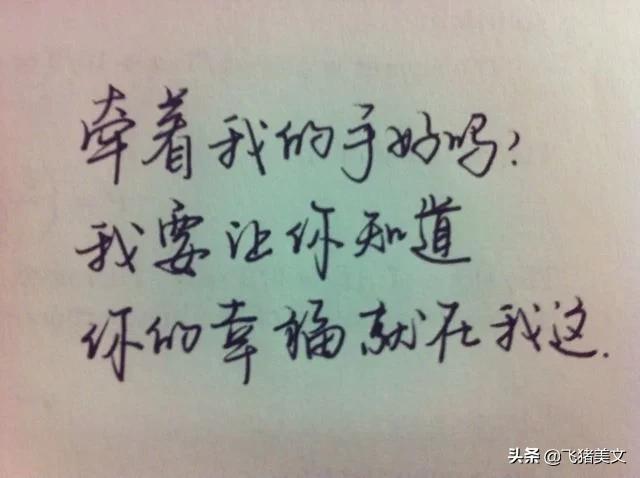 牵着我的手好吗?
我要让你知道
你的幸福就在我这.
头条 @飞猪美文